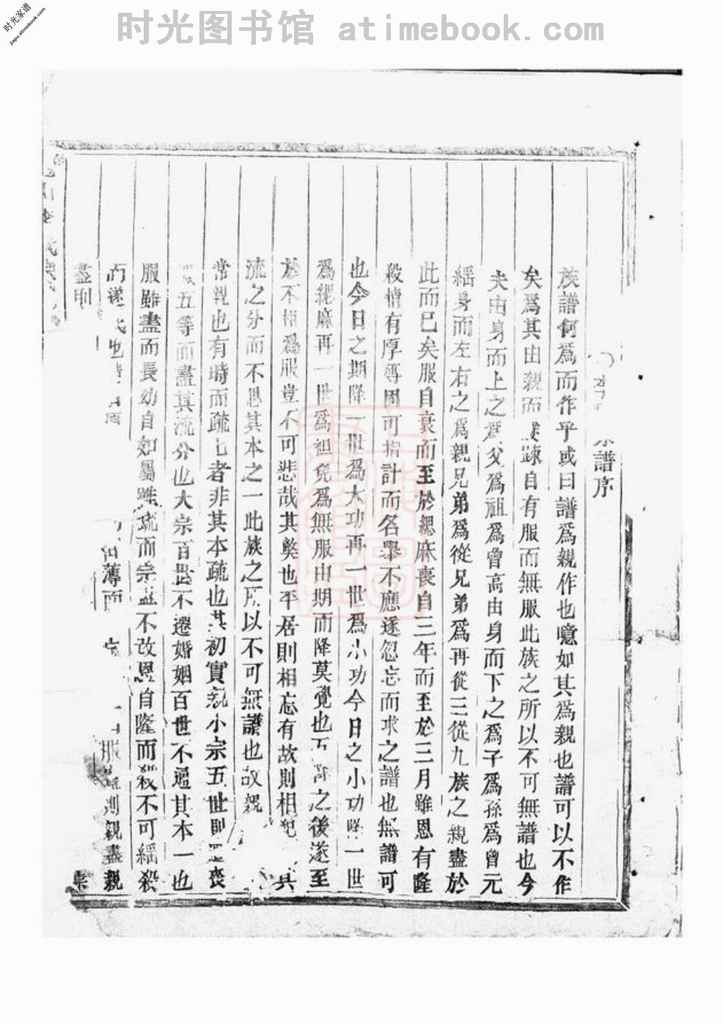 时光图书馆 atimebook.com
时光家谱
jiapu.atimebook.com
宗譜序
族譜何爲而作乎或曰譜爲親作也噫如其爲親也譜可以不作
矣爲其由親而疎自有服而無服此族之所以不可無譜也今
夫由身而上之爲父爲祖爲曾高由身而下之爲子爲孫爲曾元
緦身而左右之爲親兄弟爲從兄弟爲再從三從九族之親盡於
此而已矣服自衰而至於緦麻喪自三年而至於三月雖恩有隆
殺禮有厚專固可指計而名舉不應遂忽忘而求之譜也無譜可
也今日之期降一世爲大功再一世爲小功今日之小功降一世
爲緦麻再一世爲袒免爲無服由期而降莫覺也五之後遂至
於不相爲服豈不可悲哉其與也平居則相忘有故則相犯其
流之分而不思其本之一此族之所以不可無譜也故親
常親也有時而疏也者非其本疏也其初實親小宗五世則喪
五等而盡其流分也大宗百世不遷婚姻百世不通其本一也
服雖盡而長幼自如屬雖疏而宗盟不改恩自隆而殺不可緦殺
而遂也薄而服則親盡親
盡則